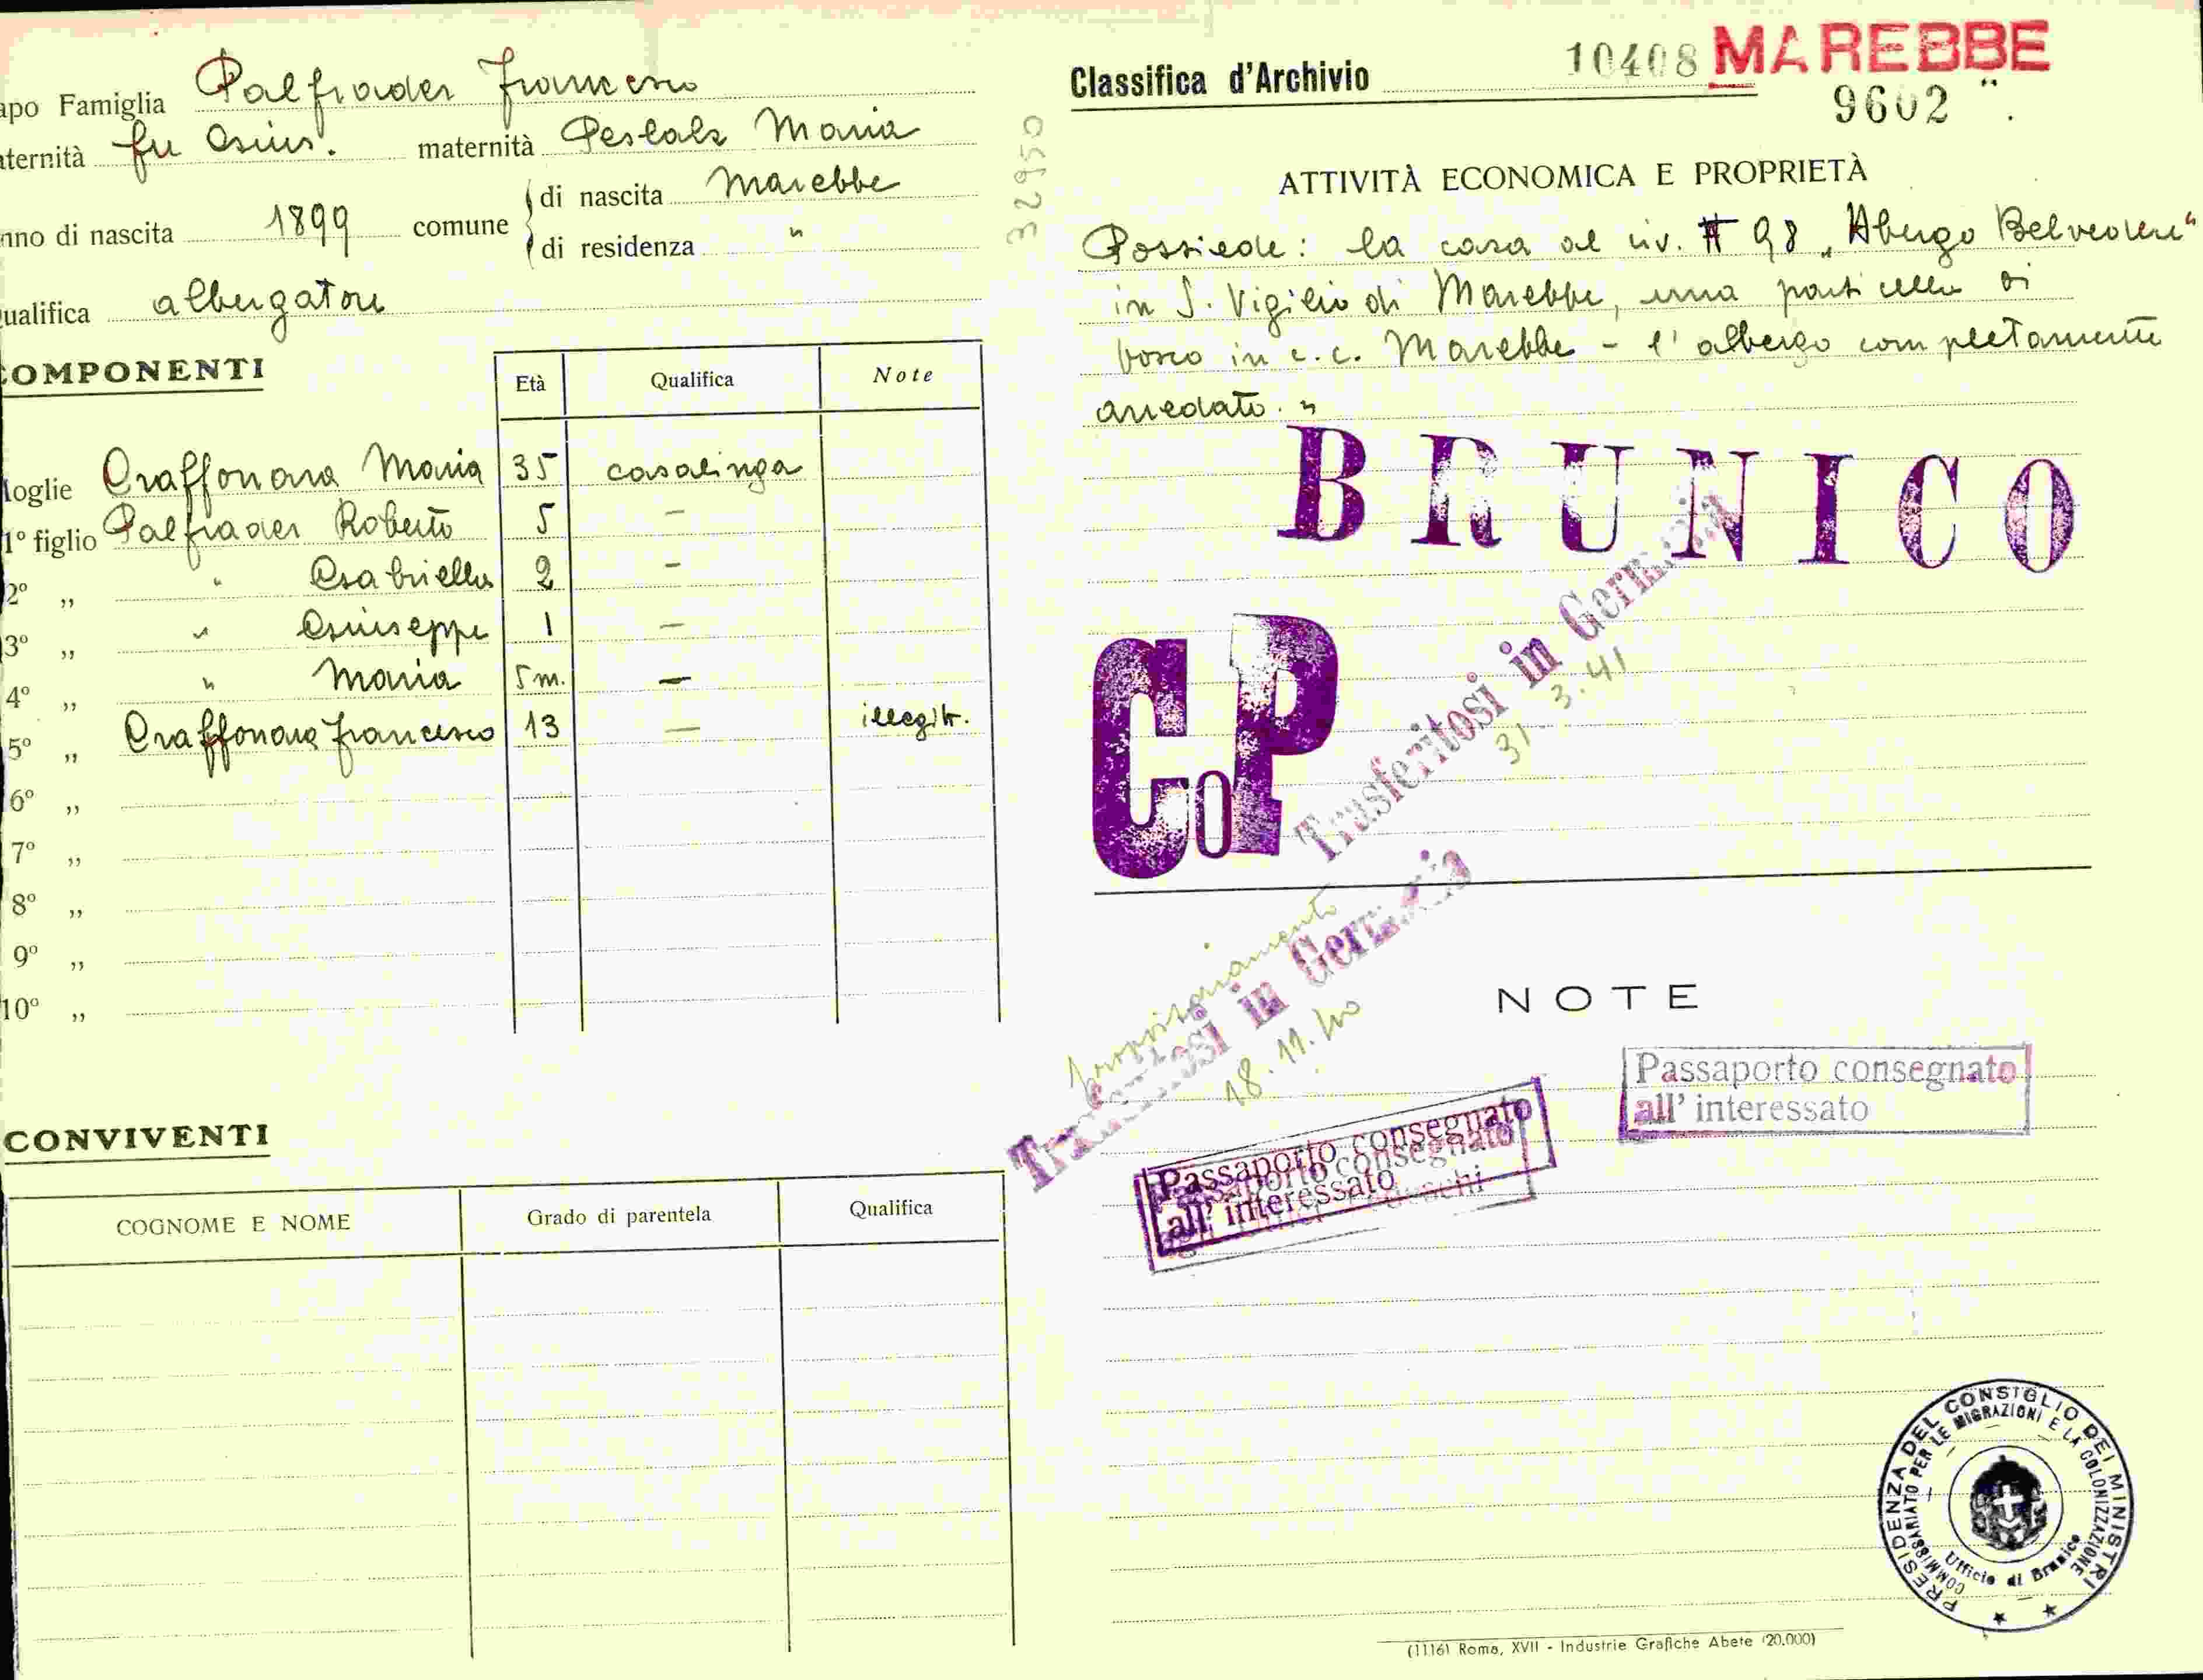 apo Famiglia Palfrader Francesco
aternità fu Osius. maternità Pescalz Maria
nno di nascita 1899 comune di nascita Marebbe
di residenza "
ualifica albergatore
COMPONENTI
Età Qualifica Note
Moglie Craffonara Maria 35 casalinga
1° figlio Palfrader Roberto 5 —
2° „ " 2 —
3° „ " Giuseppe 1 —
4° „ " Maria 5 m. —
5° „ Craffonara Francesco 13 — illegit.
6° „
7° „
8° „
9° „
10° „
CONVIVENTI
COGNOME E NOME Grado di parentela Qualifica
32950
Classifica d'Archivio 10408 MAREBBE
9602
ATTIVITÀ ECONOMICA E PROPRIETÀ
Possiede: la casa al civ. # 98 „Albergo Belvedere"
in S. Vigilio di Marebbe, una particella di
bosco in c.c. Marebbe - l'albergo completamente
arredato.
BRUNICO
CoP
Trasferitosi in Germania
31.3.41
provvisoriamente
Trasferitosi in Germania
18.11.40
NOTE
Passaporto consegnato
all' interessato
Passaporto consegnato
all' interessato
PRESIDENZA DEL CONSIGLIO DEI MINISTRI
COMMISSARIATO PER LE MIGRAZIONI E LA COLONIZZAZIONE
Ufficio di Brunico
(1116) Roma, XVII - Industrie Grafiche Abete (20.000)